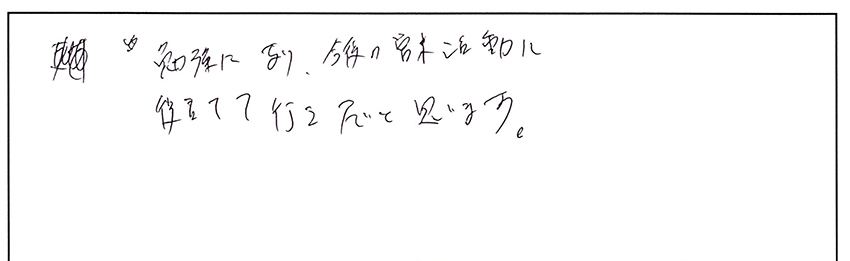 勉強になり、今後の営業活動に
役立てて行きたいと思います。